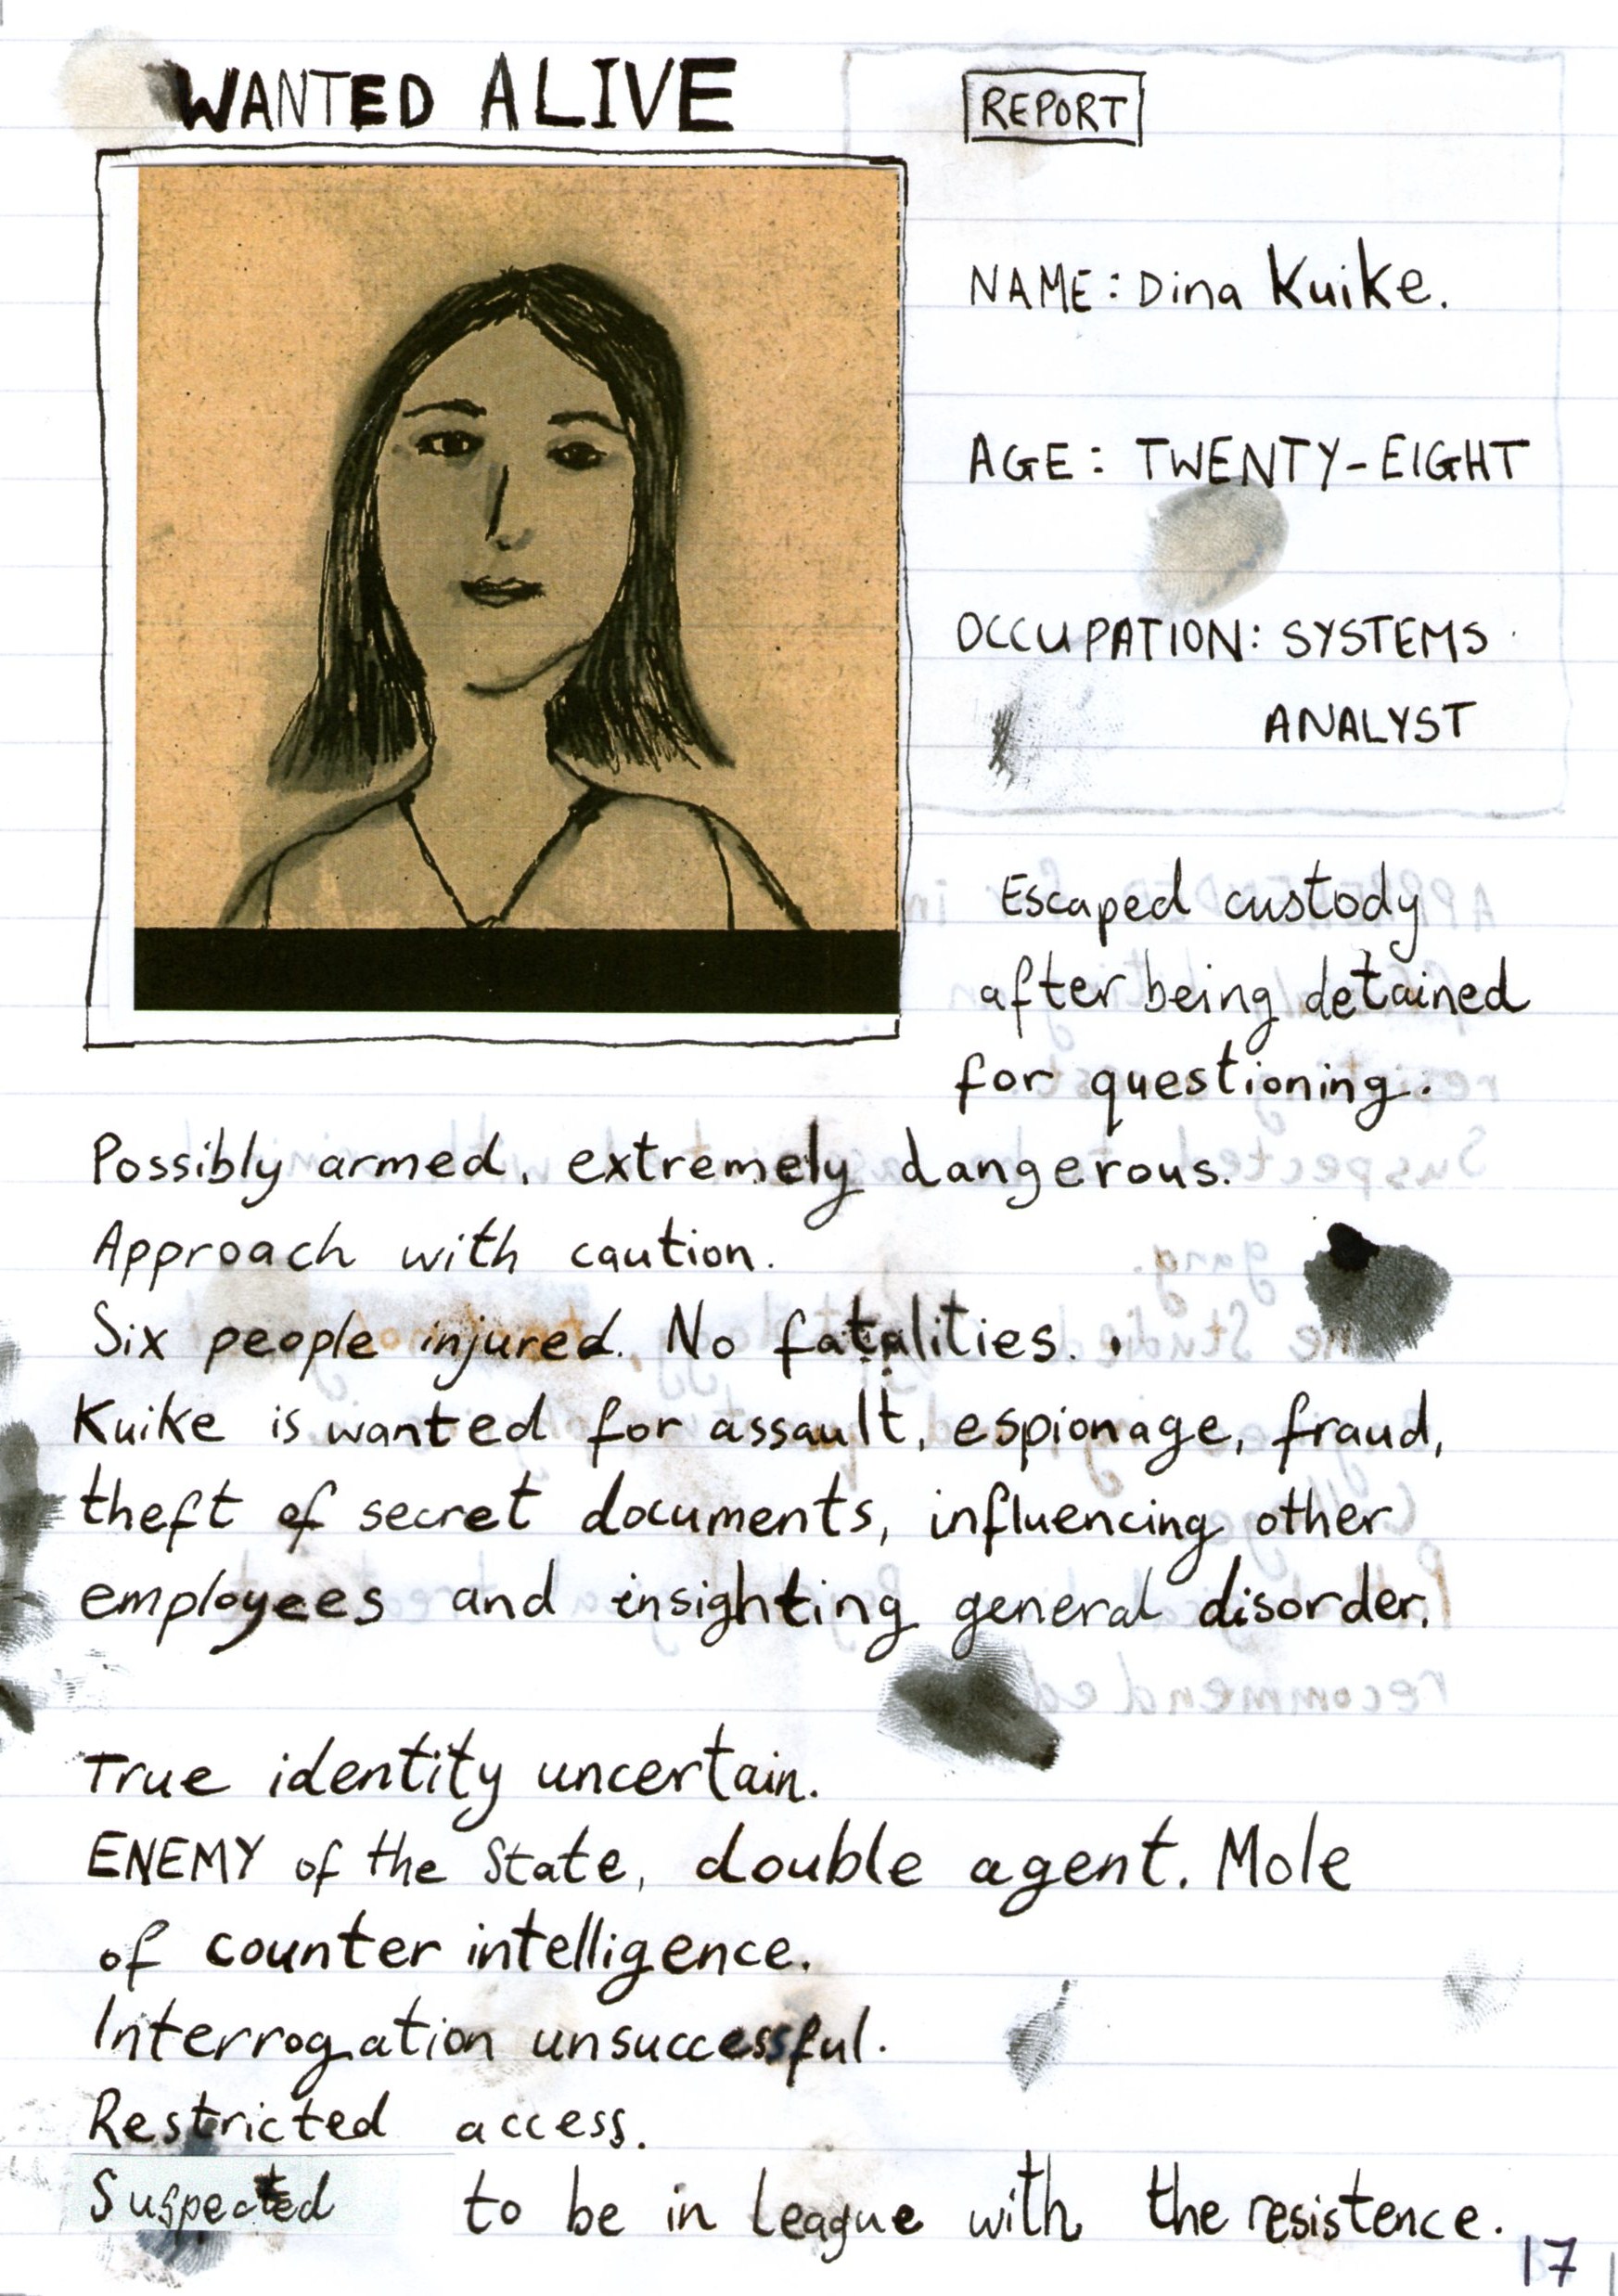 WANTED ALIVE
REPORT
NAME: Dina Kuike.
AGE: TWENTY-EIGHT
OCCUPATION: SYSTEMS
ANALYST
Escaped custody
after being detained
for questioning.
Possibly armed, extremely dangerous.
Approach with caution.
Six people injured. No fatalities.
Kuike is wanted for assault, espionage, fraud,
theft of secret documents, influencing other
employees and insighting general disorder.
True identity uncertain.
ENEMY of the State, double agent. Mole
of counter intelligence.
Interrogation unsuccessful.
Restricted access.
Suspected to be in league with the resistence.
17